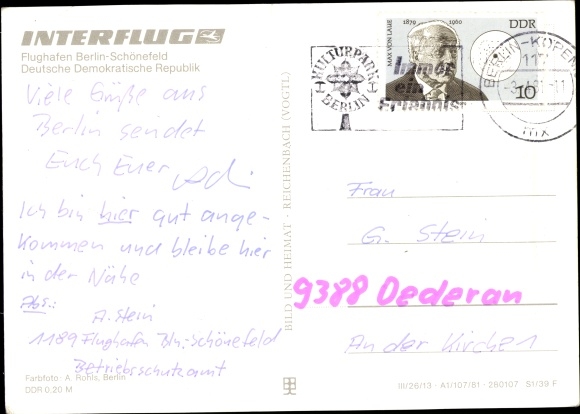 INTERFLUG
Flughafen Berlin-Schönefeld
Deutsche Demokratische Republik
Viele Grüße aus
Berlin sendet
Euch Euer
Ich bin hier gut ange-
kommen und bleibe hier
in der Nähe
Abs.:
A. Stein
1189 Flughafen Bln.-Schönefeld
Betriebsschutzamt
Farbfoto: A. Rohls, Berlin
DDR 0.20 M
BILD UND HEIMAT · REICHENBACH (VOGTL)
MAX VON LAUE
1879 1960
DDR
10
KULTURPARK
BERLIN
Immer
ein
Erlebnis
BERLIN-KÖPEN
Frau
G. Stein
9388 Oederan
An der Kirchen
III/26/13 · A1/107/81 · 280107 S1/39 F